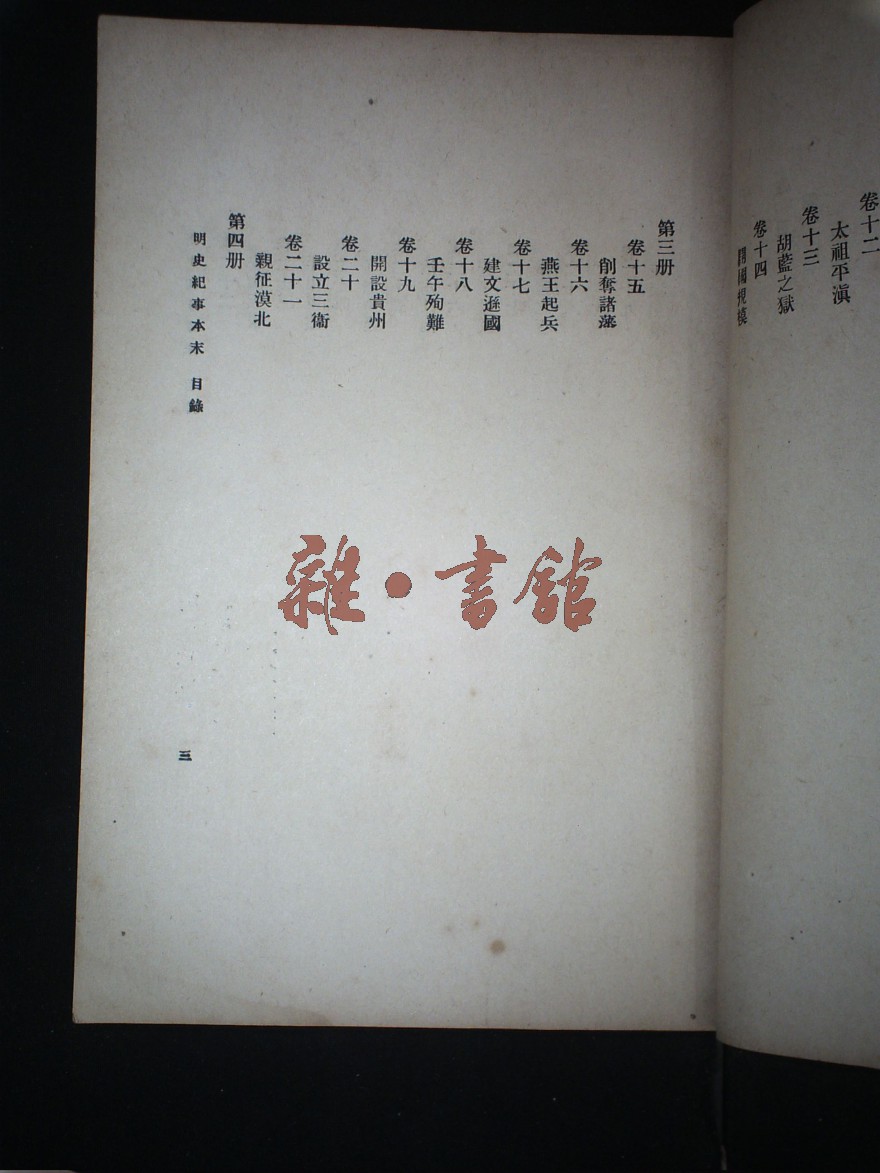 卷十二
太祖平滇
卷十三
胡藍之獄
卷十四
開國規模
第三册
卷十五
削奪諸藩
卷十六
燕王起兵
卷十七
建文遜國
卷十八
壬午殉難
卷十九
開設貴州
卷二十
設立三衞
卷二十一
親征漠北
第四册
明史紀事本末 目錄
三
雜·書館